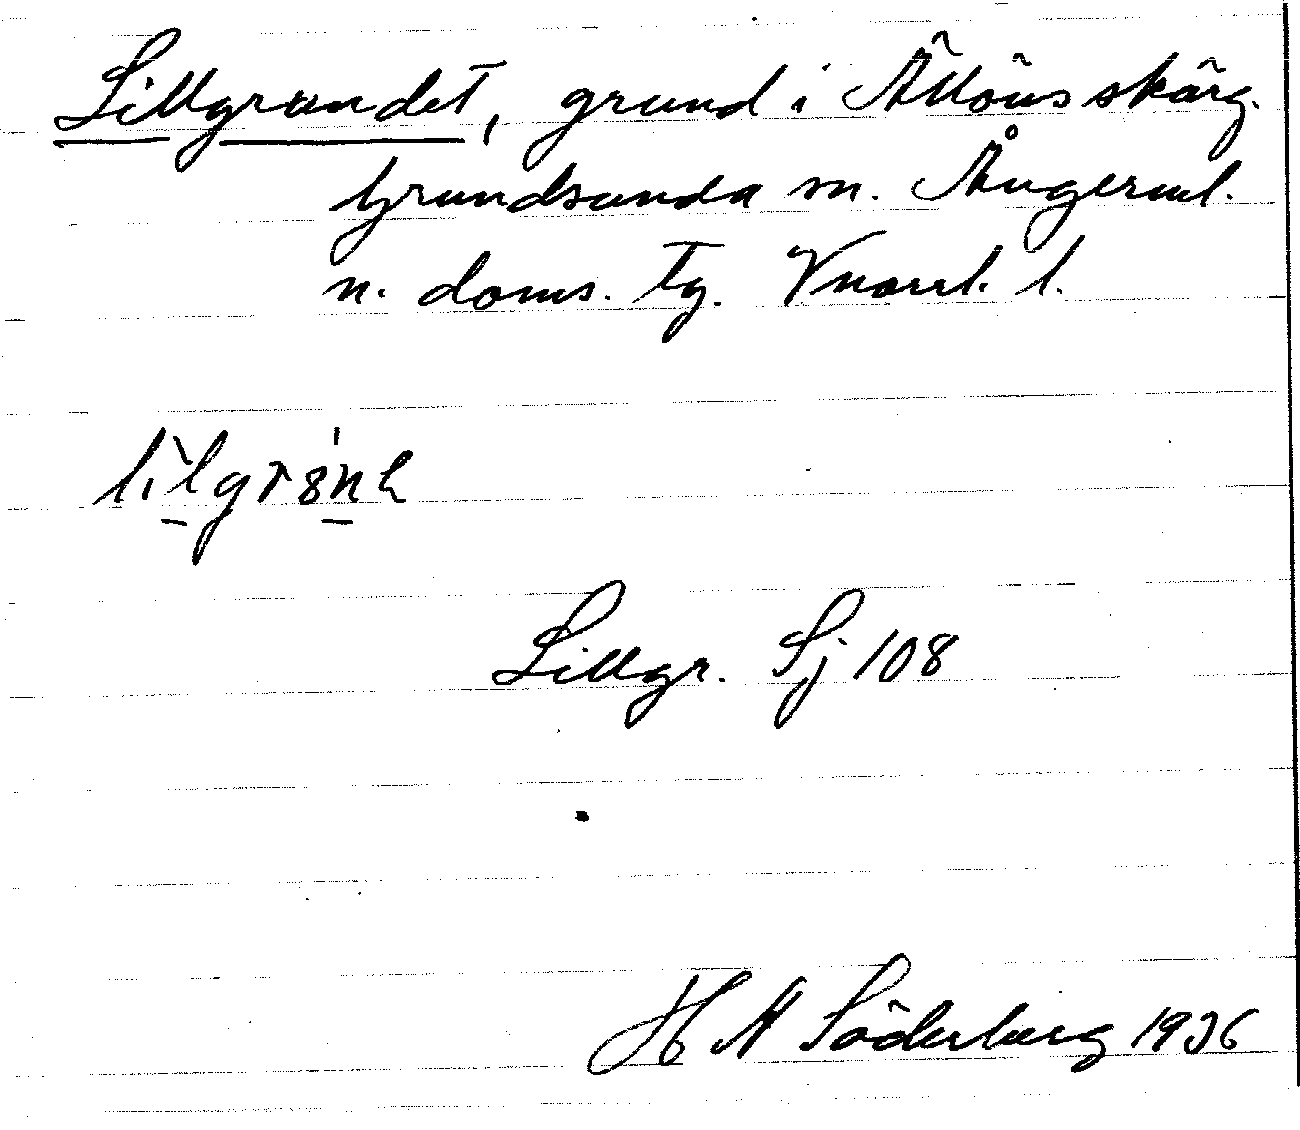 Lillgrundet, grund i Ällöns skärg.
Grundsunda sn. Ångerml.
n. doms. tg. Vnorrl. l.
Lillgr. Sj 108
H A Söderberg 1936